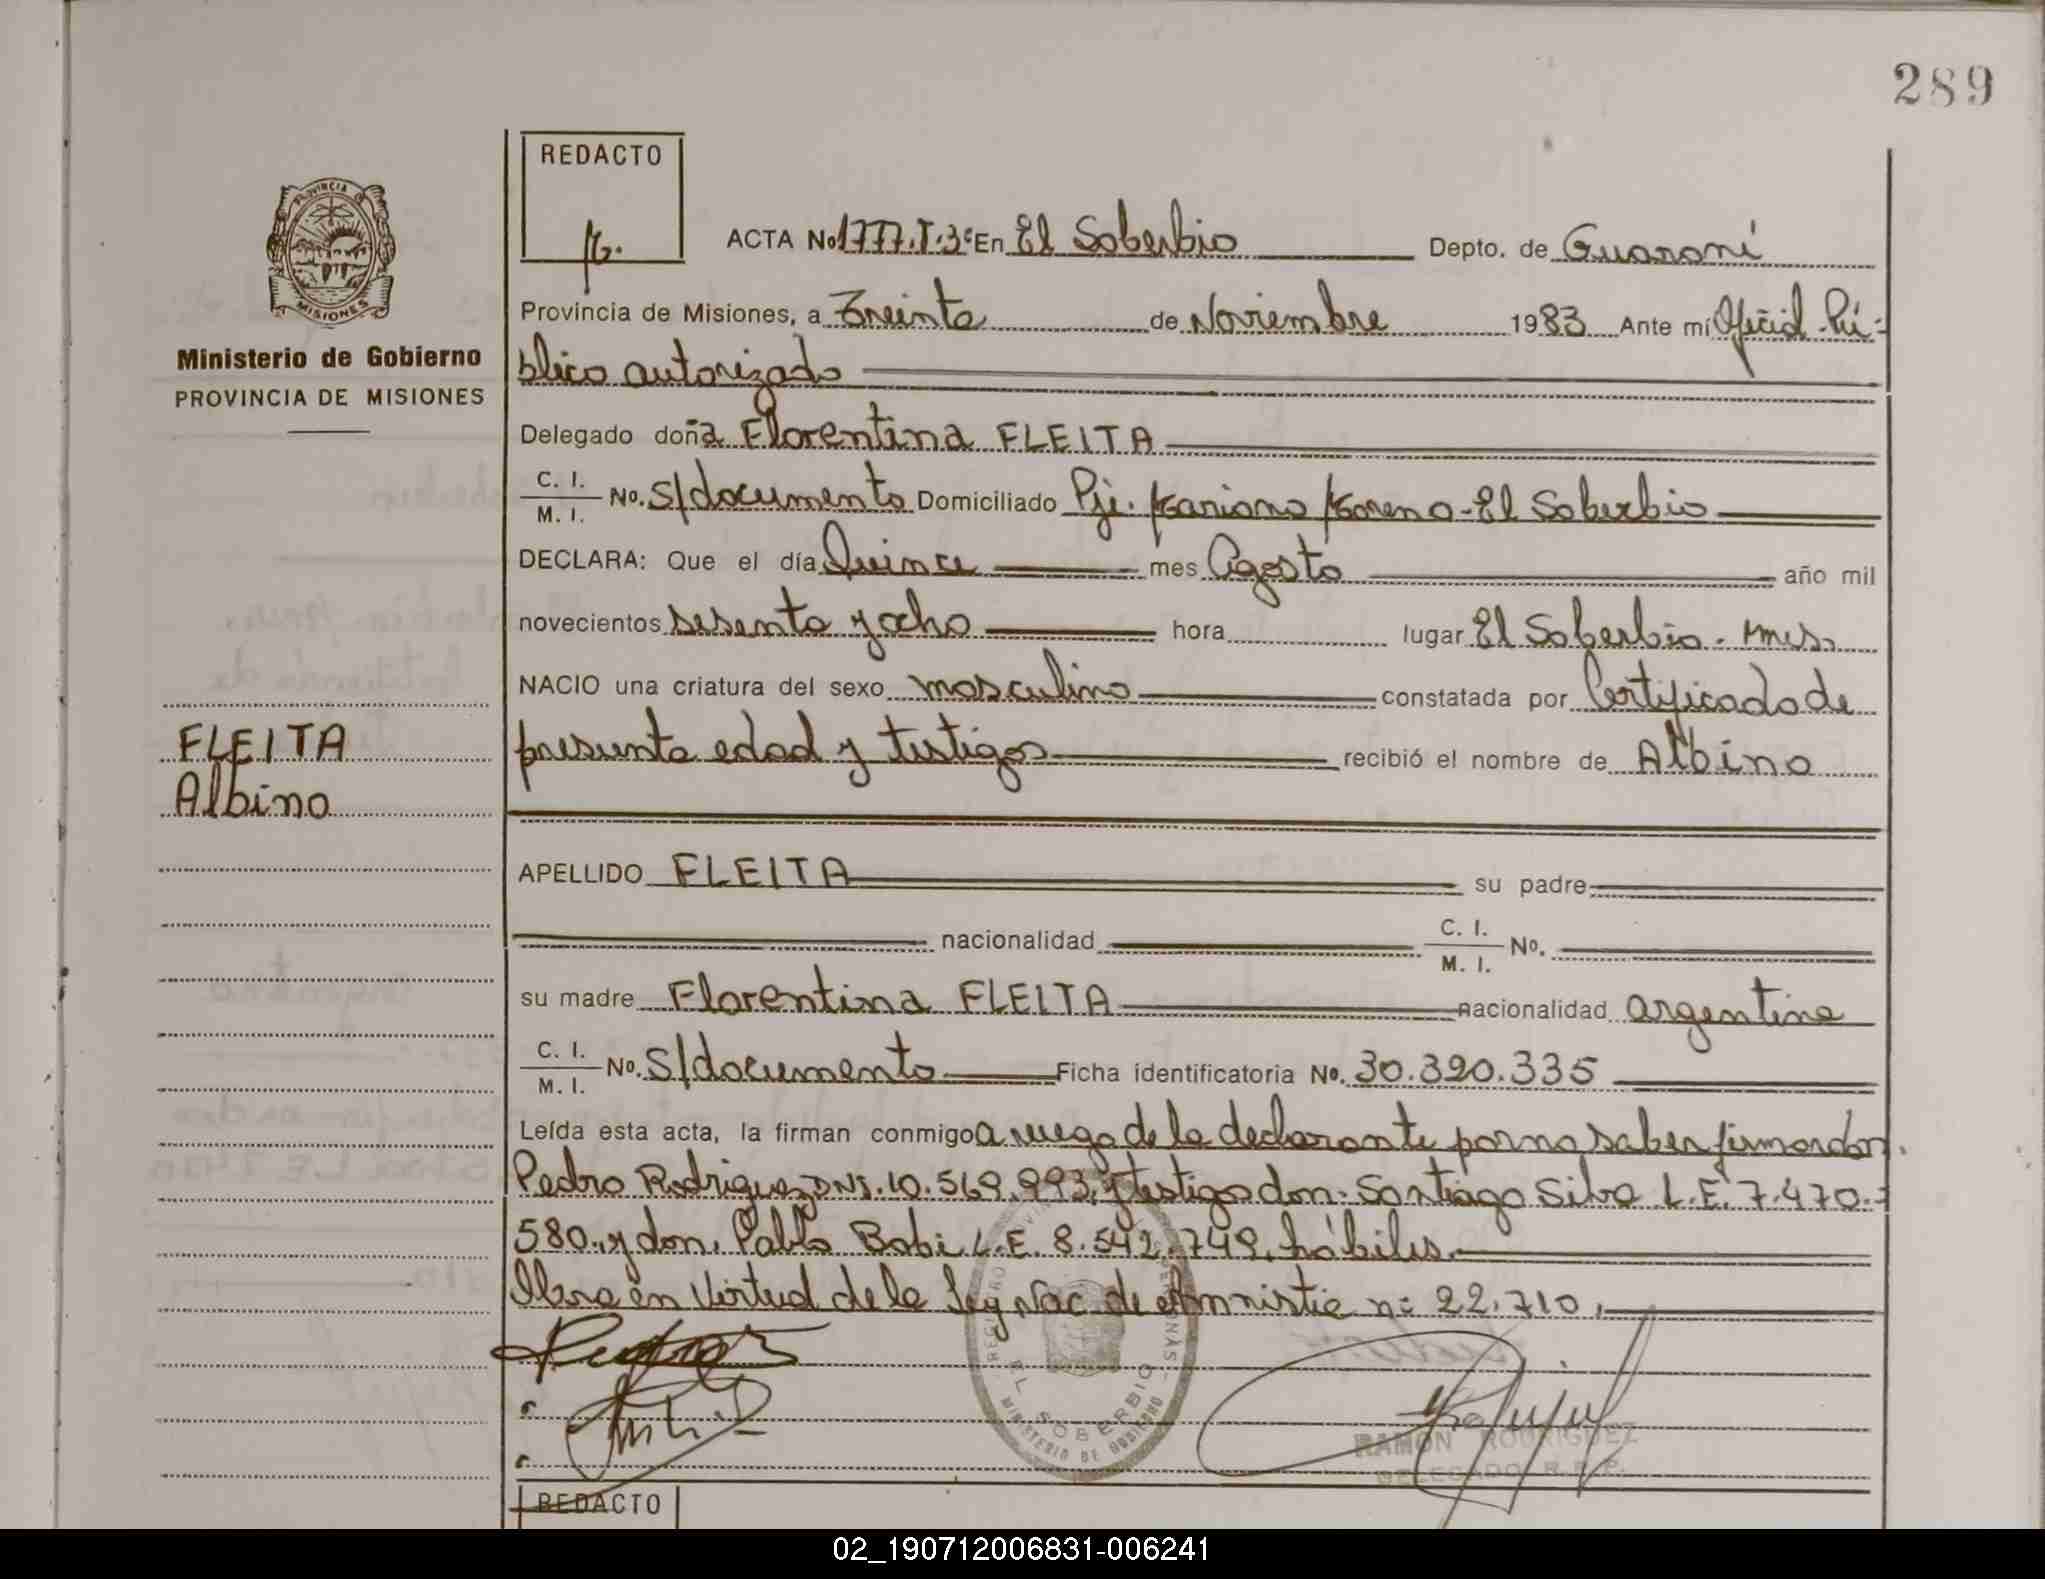 289
REDACTO
ACTA No 1777.T.3º En El Soberbio Depto. de Guaraní
PROVINCIA
MISIONES
Provincia de Misiones, a Treinta de Noviembre 1983 Ante mí Oficial Pú-
Ministerio de Gobierno
blico autorizado
PROVINCIA DE MISIONES
Delegado doña Florentina FLEITA
C. I.
M. I. No. S/documento Domiciliado Pje. Mariano Moreno-El Soberbio
DECLARA: Que el día Quince mes Agosto año mil
novecientos sesenta y ocho hora lugar El Soberbio - Mnes.
NACIO una criatura del sexo masculino constatada por Certificado de
FLEITA
presunta edad y testigos recibió el nombre de Albino
Albino
APELLIDO FLEITA su padre
nacionalidad C. I.
M. I. No.
su madre Florentina FLEITA nacionalidad argentina
C. I.
M. I. No. S/documento Ficha identificatoria No. 30.320.335
Leída esta acta, la firman conmigo a ruego de la declarante por no saber firmar don
Pedro Rodriguez DNI. 10.569.993, y testigos don. Santiago Silva L.E. 7.470.
580. y don. Pablo Bobi L.E. 8.542.749, hábiles.
Obra en Virtud de la Ley Nac. de Amnistia nº 22.710.
EL SOBERBIO
MINISTERIO DE GOBIERNO
RAMON RODRIGUEZ
DELEGADO R.P.P.
REDACTO
02_190712006831-006241